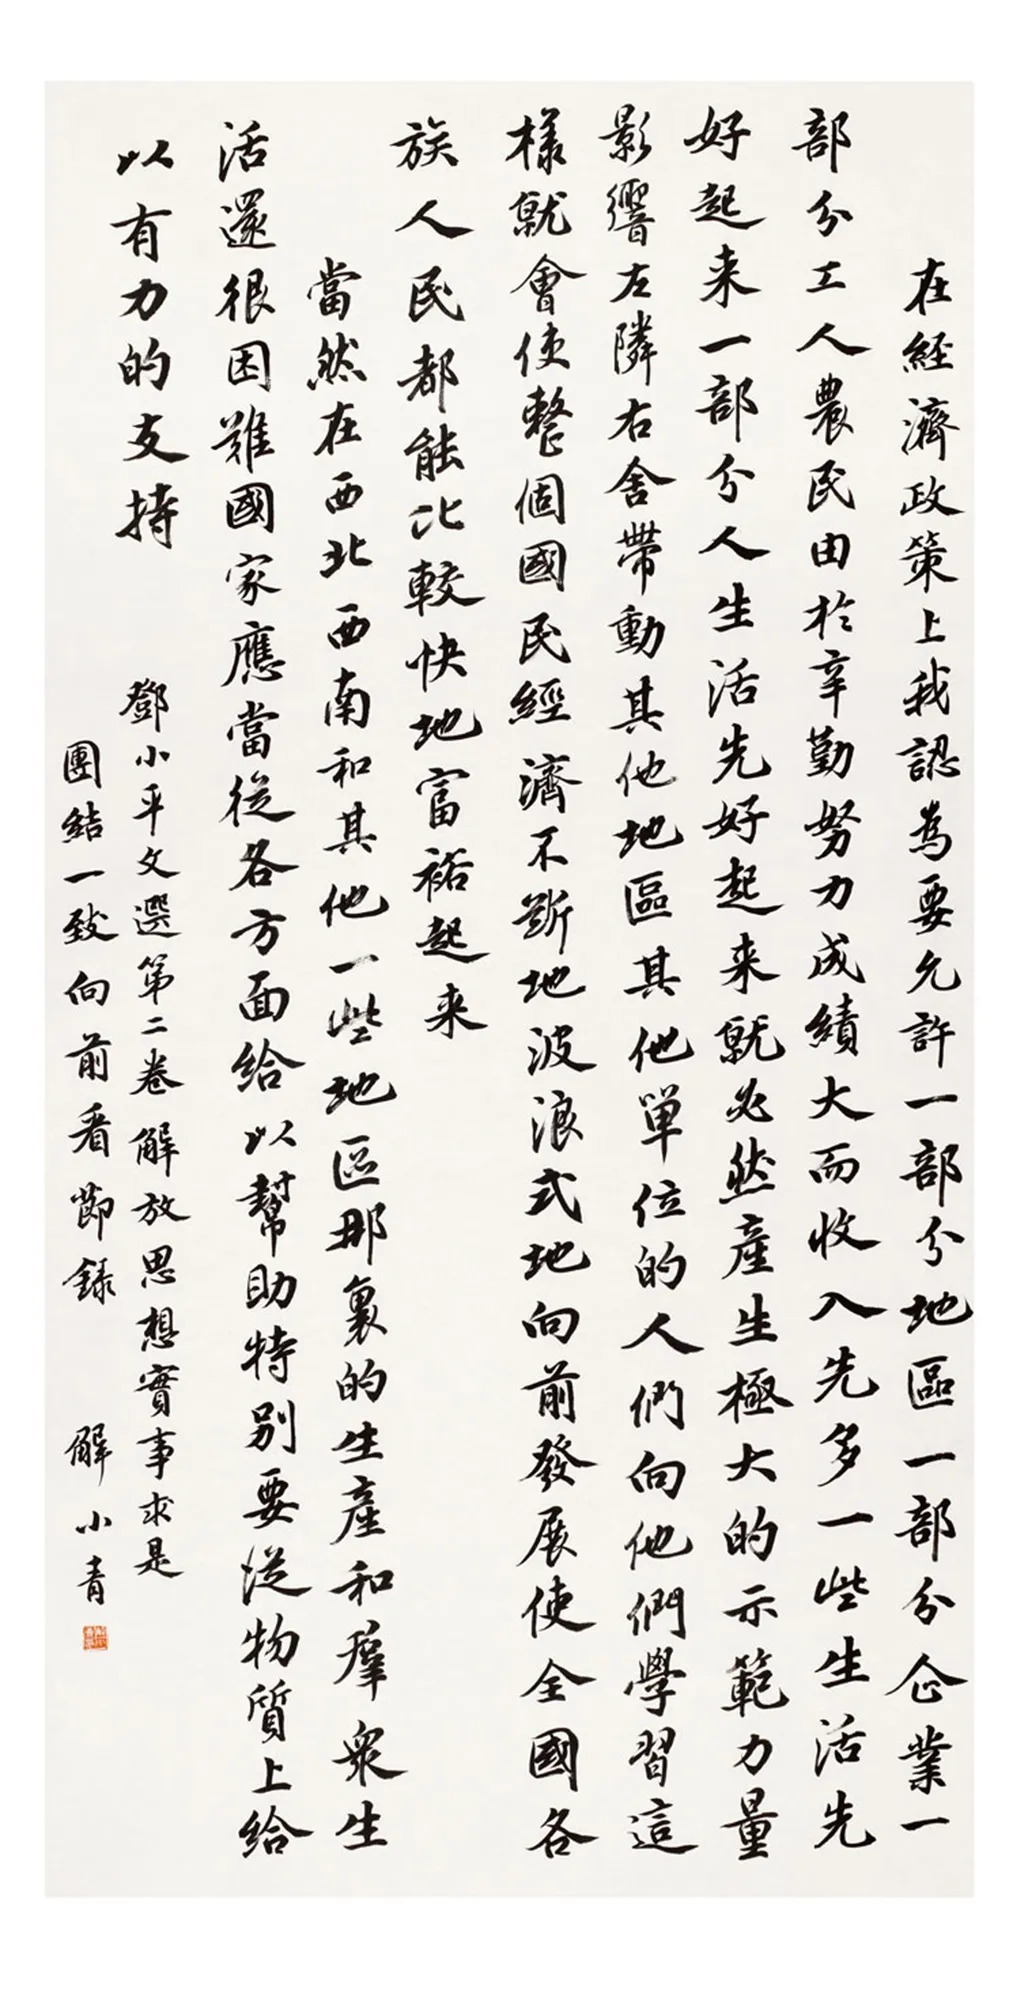 在経濟政策上我認為要允許一部分地區一部分企業一
部分工人農民由於辛勤努力成績大而收入先多一些生活先
好起来一部分人生活先好起来就必然產生極大的示範力量
影響左隣右舍帶動其他地區其他單位的人們向他們學習這
樣就會使整個國民經濟不斷地波浪式地向前發展使全國各
族人民都能比較快地富裕起来
當然在西北西南和其他一些地区那裏的生產和羣衆生
活還很困難國家應當從各方面給以幫助特別要從物質上給
以有力的支持
鄧小平文選第二卷解放思想實事求是
團結一致向前看節錄 解小青